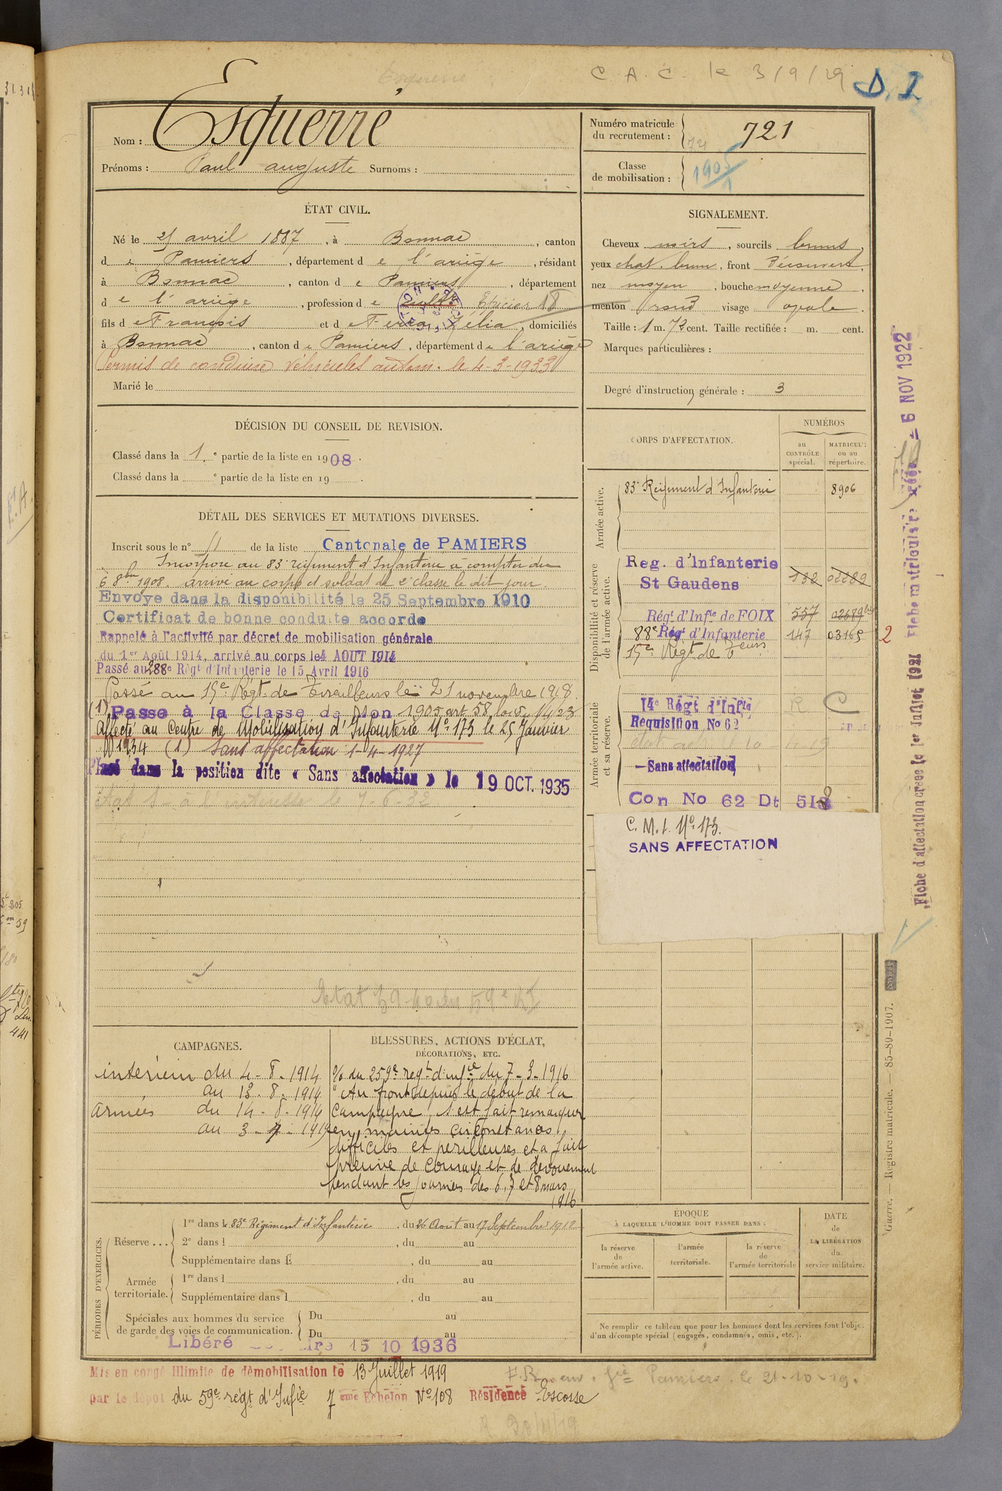 C A C. le 3/9/29
D. I.
Nom : Esquerré
Prénoms : Paul auguste Surnoms :
Numéro matricule du recrutement : 721
Classe de mobilisation : 1905
ÉTAT CIVIL.
Né le 25 avril 1887, à Bonnac, canton
de Pamiers, département de l'ariège, résidant
à Bonnac, canton de Pamiers, département
de l'ariège, profession de Epicier 18
fils de François et de Feron Félia, domiciliés
à Bonnac, canton de Pamiers, département de l'ariège
Permis de conduire véhicules autom. le 4-3-1933
Marié le
SIGNALEMENT.
Cheveux noirs, sourcils bruns,
yeux chat. brun, front Découvert,
nez moyen, bouche moyenne,
menton rond visage ovale.
Taille : 1 m. 73 cent. Taille rectifiée : m. cent.
Marques particulières :
Degré d'instruction générale : 3
DÉCISION DU CONSEIL DE REVISION.
Classé dans la 1.e partie de la liste en 1908
Classé dans la e partie de la liste en 19
DÉTAIL DES SERVICES ET MUTATIONS DIVERSES.
Inscrit sous le n° 11 de la liste Cantonale de PAMIERS
Incorporé au 83e régiment d'Infanterie à compter du
6 8bre 1908. arrivé au corps et soldat de 2e classe le dit jour.
Envoyé dans la disponibilité le 25 Septembre 1910
Certificat de bonne conduite accordé
Rappelé à l'activité par décret de mobilisation générale
du 1er Août 1914, arrivé au corps le 4 AOUT 1914
Passé au 288e Régt d'Infanterie le 15 Avril 1916
Passé au 15e Régt de Tirailleurs le 21 novembre 1918.
(1) Passé à la Classe de Mon 1905 art 58 loi 1/4/23
Affecté au Centre de Mobilisation d'Infanterie N° 173 le 25 Janvier
1924 (1) Sans affectation 1-4-1927
Placé dans la position dite « Sans affectation » le 19 OCT. 1935
CORPS D'AFFECTATION.
NUMÉROS
au CONTRÔLE spécial.
MATRICULE ou au répertoire.
Armée active.
83e Régiment d'Infanterie 8906
Disponibilité et réserve de l'armée active.
Reg. d'Infanterie
St Gaudens 132
Régt d'Infie de FOIX 557
288e Régt d'Infanterie 147 03165 2
15e Régt de Teurs
Armée territoriale et sa réserve.
14e Régt d'Infie
Réquisition No 62
Sans affectation
Con No 62 Dt 518
C. M. I. N° 173.
SANS AFFECTATION
Fiche d'affectation créée le 1er Juillet 1921 Fiche matriculaire créée 6 NOV 1922
CAMPAGNES.
intérieur du 4-8-1914
au 13-8-1914
Armées du 14-8-1914
au 3-7-1919
BLESSURES, ACTIONS D'ÉCLAT,
DÉCORATIONS, ETC.
% du 259e regt d'infie du 7-3-1916
"Au front depuis le début de la
Campagne, s'est fait remarquer
en maintes circonstances
difficiles et périlleuses et a fait
preuve de courage et de dévouement
pendant les journées des 6, 7 et 8 mars
1916
PÉRIODES D'EXERCICES.
Réserve . . .
1re dans le 83e Régiment d'Infanterie, du 26 Août au 17 Septembre 1912
2e dans l , du au
Supplémentaire dans l , du au
Armée territoriale.
1re dans l , du au
Supplémentaire dans l , du au
Spéciales aux hommes du service
de garde des voies de communication.
Du au
Du au
Libéré 15 10 1936
ÉPOQUE
À LAQUELLE L'HOMME DOIT PASSER DANS :
la réserve de l'armée active.
l'armée territoriale.
la réserve de l'armée territoriale
DATE de LA LIBÉRATION du service militaire.
Ne remplir ce tableau que pour les hommes dont les services font l'objet
d'un décompte spécial (engagés, condamnés, omis, etc.).
Guerre. — Registre matricule. — 85-89-1907.
Mis en congé illimité de démobilisation le 13 Juillet 1919
par le Dépôt du 59e régt d'Infie 7eme Echelon N° 108 Résidence Escosse
Pamiers. le 21-10-19.